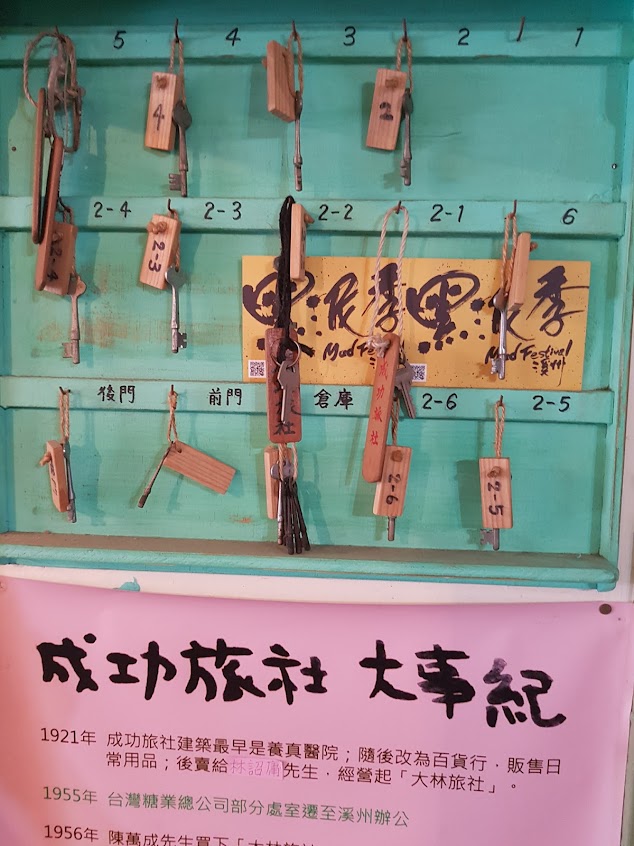 5 4 3 2 1
4
2
2-4 2-3 2-2 2-1 6
2-4
2-3
黑泥季 黑泥季
Mud Fe
Mud Festival
溪州
成功旅社
社
後門 前門 倉庫 2-6 2-5
2-6
2-5
成功旅社 大事紀
1921年 成功旅社建築最早是養真醫院；隨後改為百貨行，販售日
常用品；後賣給林詔偹先生，經營起「大林旅社」。
1955年 台灣糖業總公司部分處室遷至溪州辦公
1956年 陳萬成先生買下「大林旅社